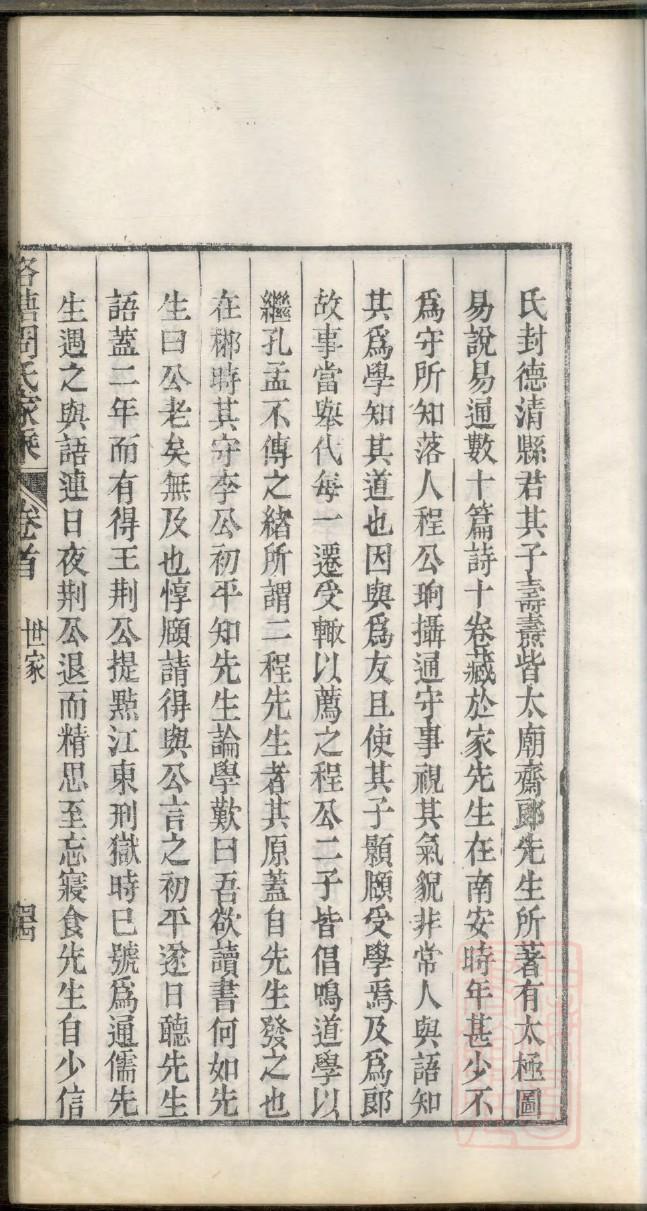 氏封德清縣君其子壽燾皆太廟齋郞先生所著有太極圖
易說易通數十篇詩十卷藏於家先生在南安時年甚少不
爲守所知落人程公珦攝通守事視其氣貌非常人與語知
其爲學知其道也因與爲友且使其子顥頤受學焉及爲郞
故事當舉代每一遷受輙以薦之程公二子皆倡鳴道學以
繼孔孟不傳之緒所謂二程先生者其原蓋自先生發之也
在郴時其守李公初平知先生論學歎曰吾欲讀書何如先
生曰公老矣無及也惇願請得與公言之初平遂日聽先生
語蓋二年而有得王荆公提㸃江東刑獄時已號爲通儒先
生遇之與語連日夜荆公退而精思至忘寢食先生自少信
周氏家乘 卷首 世家